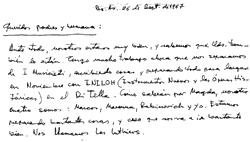 Bs. As. 06 de Sept. de 1967
Queridos padres y hermana:
Ante todo, nosotros estamos muy bien, y sabemos que Uds. tam-
bién lo están. Tengo mucho trabajo ahora que nos separamos
de I Musicisti, escribiendo cosas, y preparando todo para largar
en Noviembre con INLOH (Instrumentos Nuevos y la Ópera His-
tórica), en el Di Tella. Como sabrán por Magda, nosotros
cuatro somos: Marcos, Maronna, Rabinovich y yo. Estamos
preparando bastantes cosas, y creo que vamos a ir bastante
bien. Nos llamamos Les Luthiers.